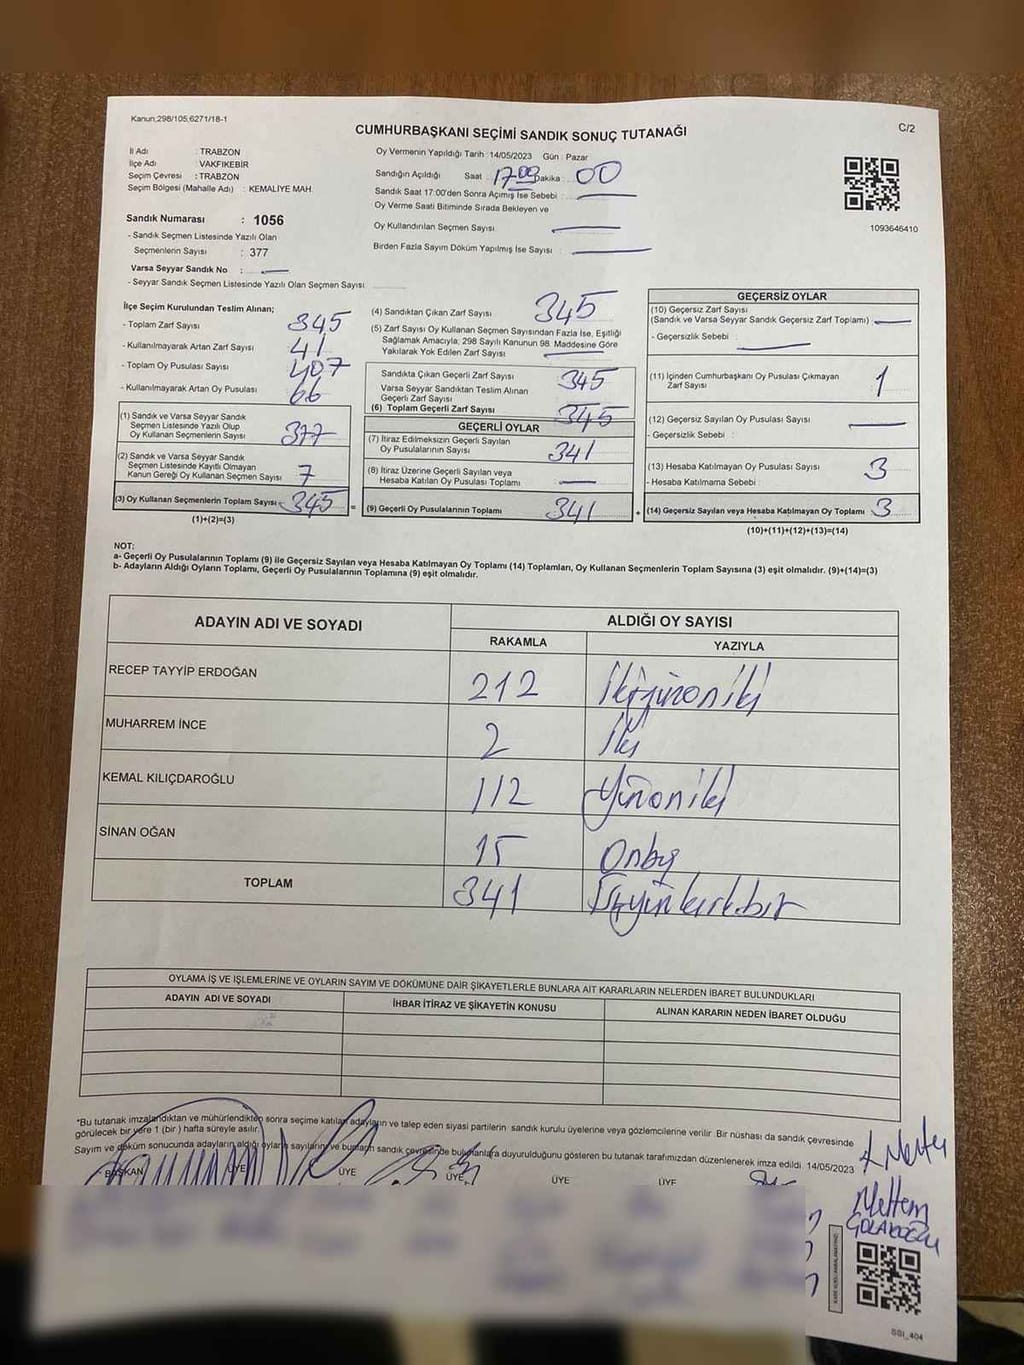 Kanun;298/105,6271/18-1
CUMHURBAŞKANI SEÇİMİ SANDIK SONUÇ TUTANAĞI
C/2
İl Adı : TRABZON
İlçe Adı : VAKFIKEBİR
Seçim Çevresi : TRABZON
Seçim Bölgesi (Mahalle Adı) : KEMALİYE MAH.
Sandık Numarası : 1056
- Sandık Seçmen Listesinde Yazılı Olan
Seçmenlerin Sayısı : 377
Varsa Seyyar Sandık No : —
- Seyyar Sandık Seçmen Listesinde Yazılı Olan Seçmen Sayısı
Oy Vermenin Yapıldığı Tarih : 14/05/2023 Gün : Pazar
Sandığın Açıldığı Saat : 17:00 Dakika : 00
Sandık Saat 17:00'den Sonra Açılmış İse Sebebi : —
Oy Verme Saati Bitiminde Sırada Bekleyen ve
Oy Kullandırılan Seçmen Sayısı : —
Birden Fazla Sayım Döküm Yapılmış İse Sayısı : —
1093646410
İlçe Seçim Kurulundan Teslim Alınan;
- Toplam Zarf Sayısı 345
- Kullanılmayarak Artan Zarf Sayısı 41
- Toplam Oy Pusulası Sayısı 407
- Kullanılmayarak Artan Oy Pusulası 66
(1) Sandık ve Varsa Seyyar Sandık
Seçmen Listesinde Yazılı Olup
Oy Kullanan Seçmenlerin Sayısı 377
(2) Sandık ve Varsa Seyyar Sandık
Seçmen Listesinde Kayıtlı Olmayan
Kanun Gereği Oy Kullanan Seçmen Sayısı 7
(3) Oy Kullanan Seçmenlerin Toplam Sayısı 345
(1)+(2)=(3)
(4) Sandıktan Çıkan Zarf Sayısı 345
(5) Zarf Sayısı Oy Kullanan Seçmen Sayısından Fazla İse, Eşitliği
Sağlamak Amacıyla; 298 Sayılı Kanunun 98. Maddesine Göre
Yakılarak Yok Edilen Zarf Sayısı : —
Sandıkta Çıkan Geçerli Zarf Sayısı 345
Varsa Seyyar Sandıktan Teslim Alınan
Geçerli Zarf Sayısı
(6) Toplam Geçerli Zarf Sayısı 345
GEÇERLİ OYLAR
(7) İtiraz Edilmeksizin Geçerli Sayılan
Oy Pusulalarının Sayısı 341
(8) İtiraz Üzerine Geçerli Sayılan veya
Hesaba Katılan Oy Pusulası Toplamı —
= (9) Geçerli Oy Pusulalarının Toplamı 341
GEÇERSİZ OYLAR
(10) Geçersiz Zarf Sayısı
(Sandık ve Varsa Seyyar Sandık Geçersiz Zarf Toplamı) —
- Geçersizlik Sebebi : —
(11) İçinden Cumhurbaşkanı Oy Pusulası Çıkmayan
Zarf Sayısı 1
(12) Geçersiz Sayılan Oy Pusulası Sayısı —
- Geçersizlik Sebebi :
(13) Hesaba Katılmayan Oy Pusulası Sayısı 3
- Hesaba Katılmama Sebebi :
+ (14) Geçersiz Sayılan veya Hesaba Katılmayan Oy Toplamı 3
(10)+(11)+(12)+(13)=(14)
NOT:
a- Geçerli Oy Pusulalarının Toplamı (9) ile Geçersiz Sayılan veya Hesaba Katılmayan Oy Toplamı (14) Toplamları, Oy Kullanan Seçmenlerin Toplam Sayısına (3) eşit olmalıdır. (9)+(14)=(3)
b- Adayların Aldığı Oyların Toplamı, Geçerli Oy Pusulalarının Toplamına (9) eşit olmalıdır.
ADAYIN ADI VE SOYADI
ALDIĞI OY SAYISI
RAKAMLA YAZIYLA
RECEP TAYYİP ERDOĞAN 212 İkiyüzoniki
MUHARREM İNCE 2 İki
KEMAL KILIÇDAROĞLU 112 Yüzoniki
SİNAN OĞAN 15 Onbeş
TOPLAM 341
OYLAMA İŞ VE İŞLEMLERİNE VE OYLARIN SAYIM VE DÖKÜMÜNE DAİR ŞİKAYETLERLE BUNLARA AİT KARARLARIN NELERDEN İBARET BULUNDUKLARI
ADAYIN ADI VE SOYADI İHBAR İTİRAZ VE ŞİKAYETİN KONUSU ALINAN KARARIN NEDEN İBARET OLDUĞU
*Bu tutanak imzalandıktan ve mühürlendikten sonra seçime katılan adayların ve talep eden siyasi partilerin sandık kurulu üyelerine veya gözlemcilerine verilir. Bir nüshası da sandık çevresinde
görülecek bir yere 1 (bir) hafta süreyle asılır.
Sayım ve döküm sonucunda adayların aldığı oyların sayılarını ve bunların sandık çevresinde bulunanlara duyurulduğunu gösteren bu tutanak tarafımızdan düzenlenerek imza edildi. 14/05/2023
BAŞKAN ÜYE ÜYE ÜYE ÜYE ÜYE
Meltem
SSI_404